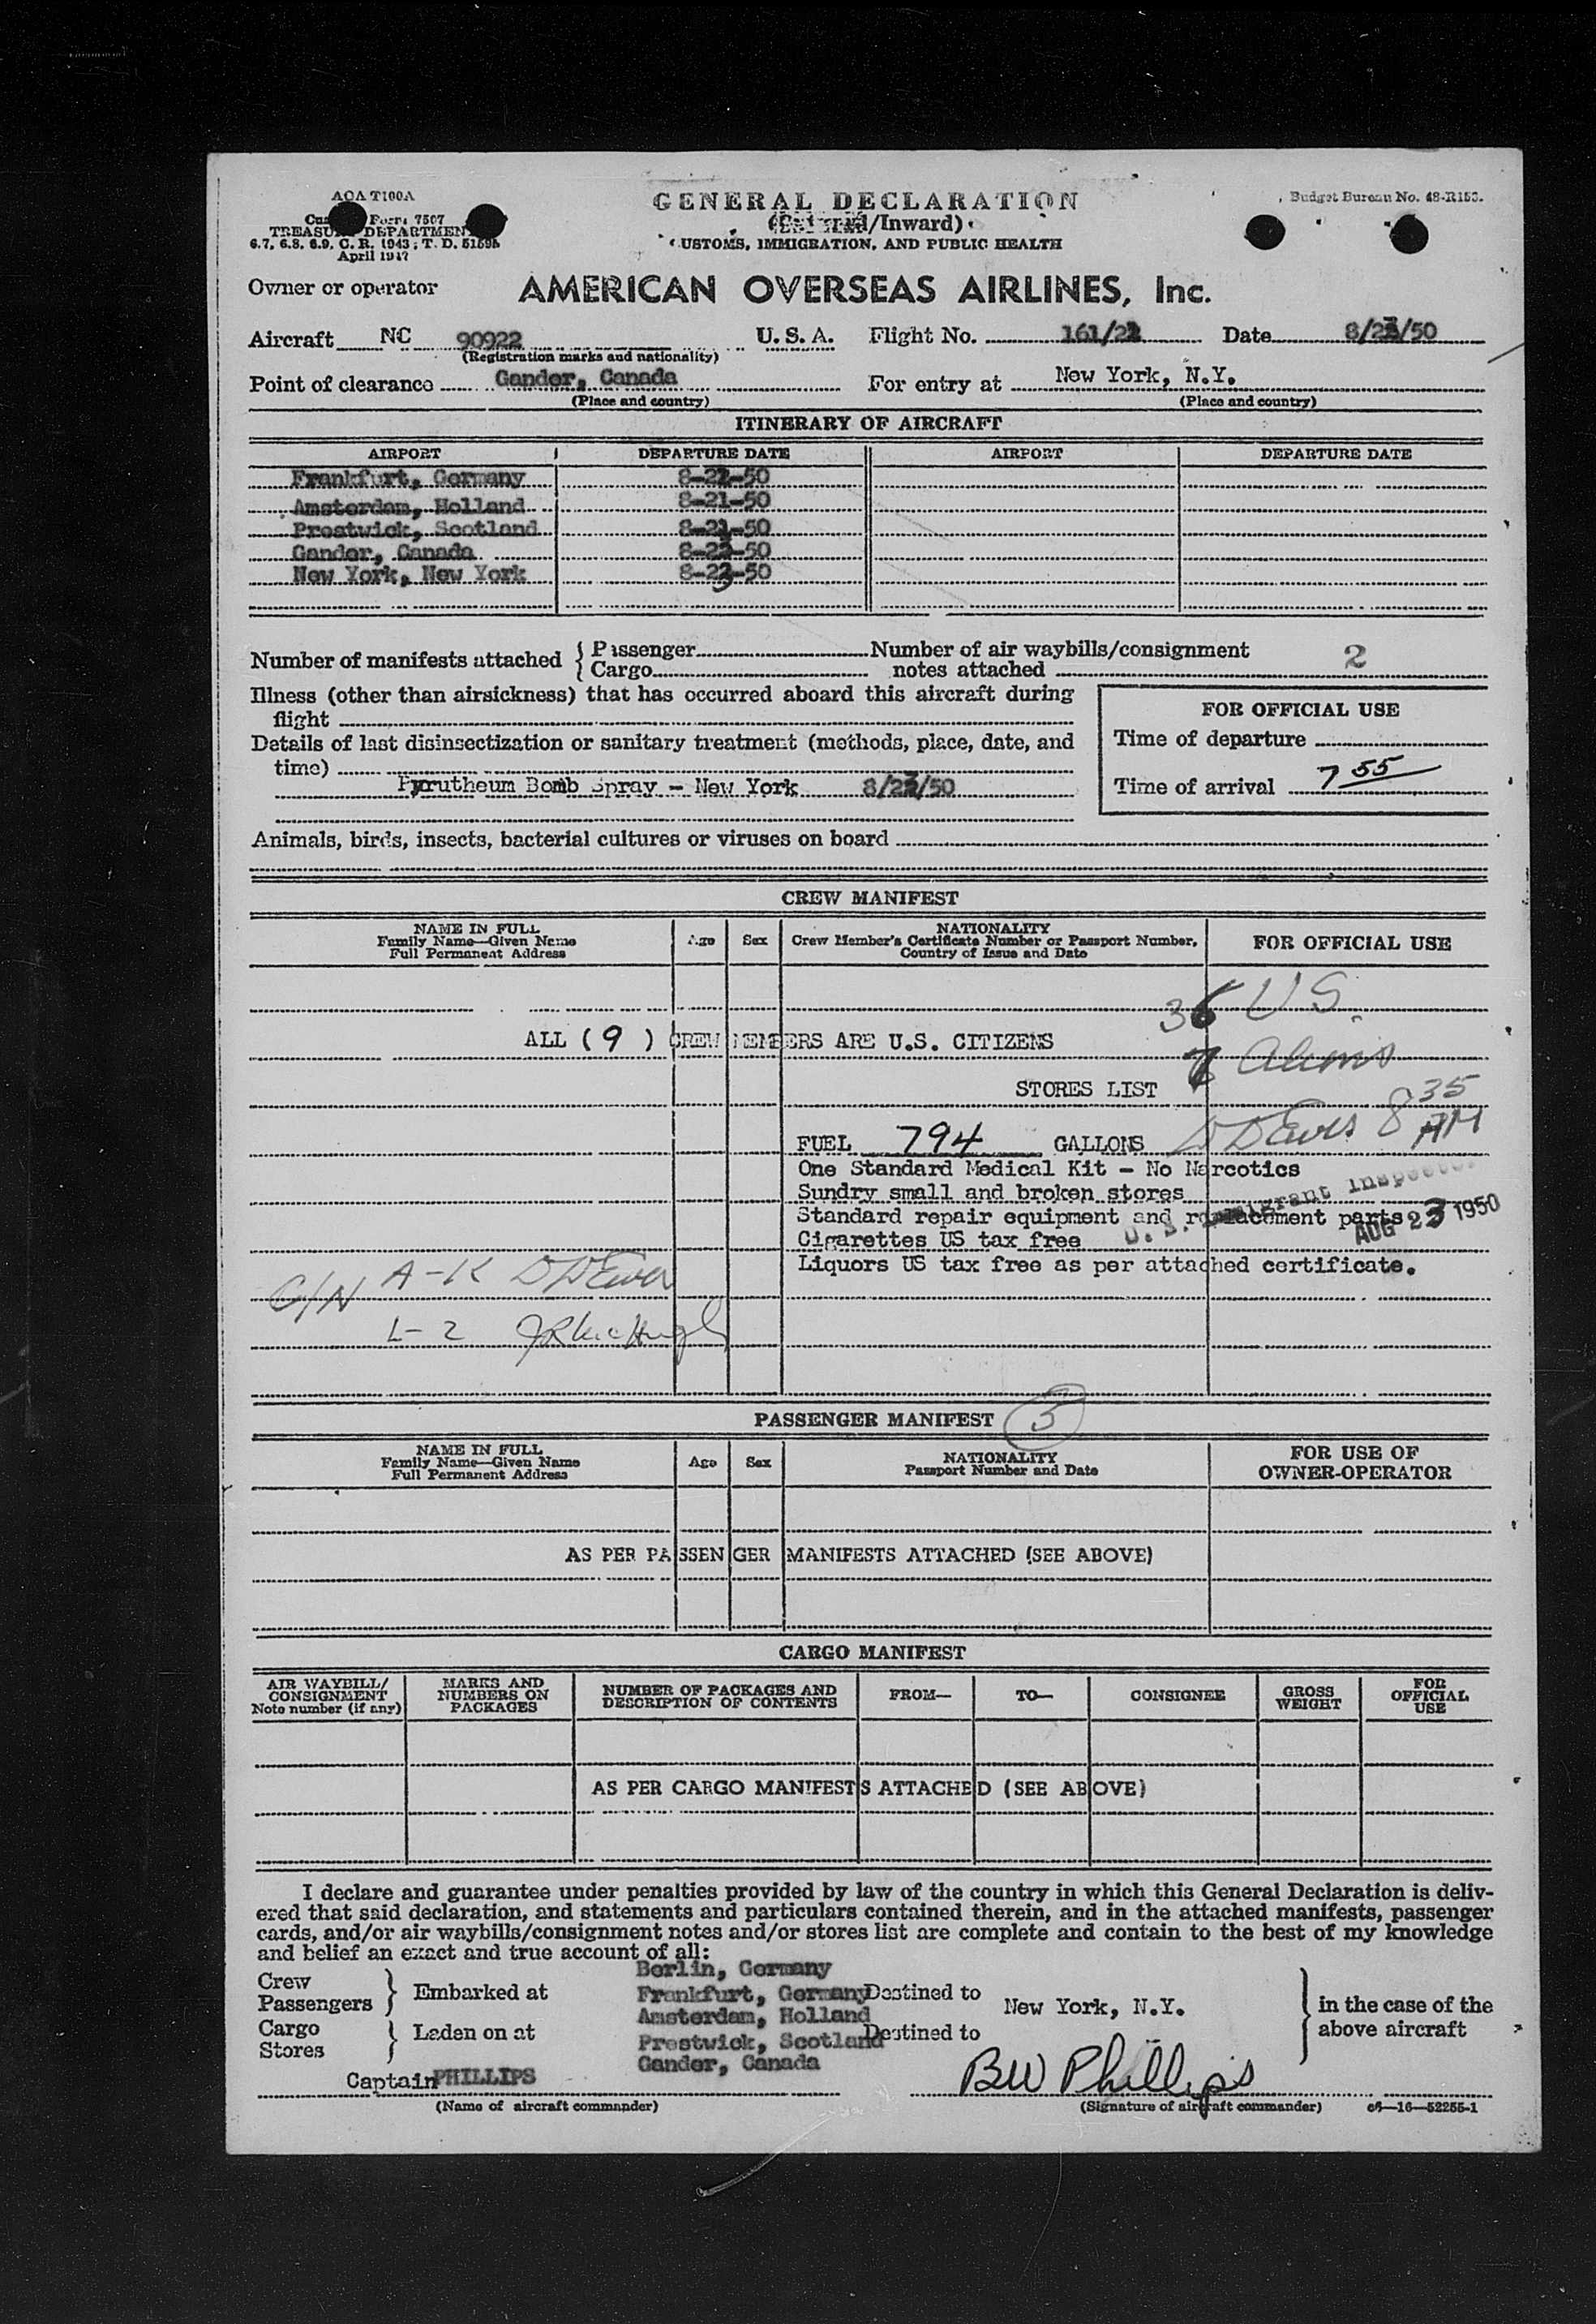 AOA T100A
Customs Form 7507
TREASURY DEPARTMENT
6.7, 6.8, 6.9, C. R. 1943; T. D. 51595
April 1947
GENERAL DECLARATION
(Outward/Inward)
CUSTOMS, IMMIGRATION, AND PUBLIC HEALTH
Budget Bureau No. 48-R153.
Owner or operator AMERICAN OVERSEAS AIRLINES, Inc.
Aircraft NC 90922 U. S. A. Flight No. 161/22 Date 8/23/50
(Registration marks and nationality)
Point of clearance Gander, Canada For entry at New York, N.Y.
(Place and country) (Place and country)
ITINERARY OF AIRCRAFT
AIRPORT DEPARTURE DATE AIRPORT DEPARTURE DATE
Frankfurt, Germany 8-22-50
Amsterdam, Holland 8-21-50
Prestwick, Scotland 8-21-50
Gander, Canada 8-23-50
New York, New York 8-23-50
Number of manifests attached { Passenger Number of air waybills/consignment
Cargo notes attached 2
Illness (other than airsickness) that has occurred aboard this aircraft during
flight
FOR OFFICIAL USE
Details of last disinsectization or sanitary treatment (methods, place, date, and
time)
Time of departure
Pyrutheum Bomb Spray - New York 8/23/50
Time of arrival 7 55
Animals, birds, insects, bacterial cultures or viruses on board
CREW MANIFEST
NAME IN FULL
Family Name—Given Name
Full Permanent Address
Age Sex
NATIONALITY
Crew Member's Certificate Number or Passport Number,
Country of Issue and Date
FOR OFFICIAL USE
36 US
ALL ( 9 ) CREW MEMBERS ARE U.S. CITIZENS
Aliens
STORES LIST
8 35 AM
FUEL 794 GALLONS
One Standard Medical Kit - No Narcotics
Sundry small and broken stores
U. S. Immigrant Inspector
Standard repair equipment and replacement parts
AUG 23 1950
Cigarettes US tax free
Liquors US tax free as per attached certificate.
C/N A-K
L-Z
PASSENGER MANIFEST
NAME IN FULL
Family Name—Given Name
Full Permanent Address
Age Sex
NATIONALITY
Passport Number and Date
FOR USE OF
OWNER-OPERATOR
AS PER PASSENGER MANIFESTS ATTACHED (SEE ABOVE)
CARGO MANIFEST
AIR WAYBILL/
CONSIGNMENT
Note number (if any)
MARKS AND
NUMBERS ON
PACKAGES
NUMBER OF PACKAGES AND
DESCRIPTION OF CONTENTS
FROM— TO— CONSIGNEE
GROSS
WEIGHT
FOR
OFFICIAL
USE
AS PER CARGO MANIFESTS ATTACHED (SEE ABOVE)
I declare and guarantee under penalties provided by law of the country in which this General Declaration is deliv-
ered that said declaration, and statements and particulars contained therein, and in the attached manifests, passenger
cards, and/or air waybills/consignment notes and/or stores list are complete and contain to the best of my knowledge
and belief an exact and true account of all:
Berlin, Germany
Crew
Passengers } Embarked at Frankfurt, Germany Destined to New York, N.Y.
Amsterdam, Holland
Cargo
Stores } Laden on at Prestwick, Scotland Destined to
Gander, Canada
in the case of the
above aircraft
Captain PHILLIPS BW Phillips
(Name of aircraft commander) (Signature of aircraft commander) c6—16—52255-1